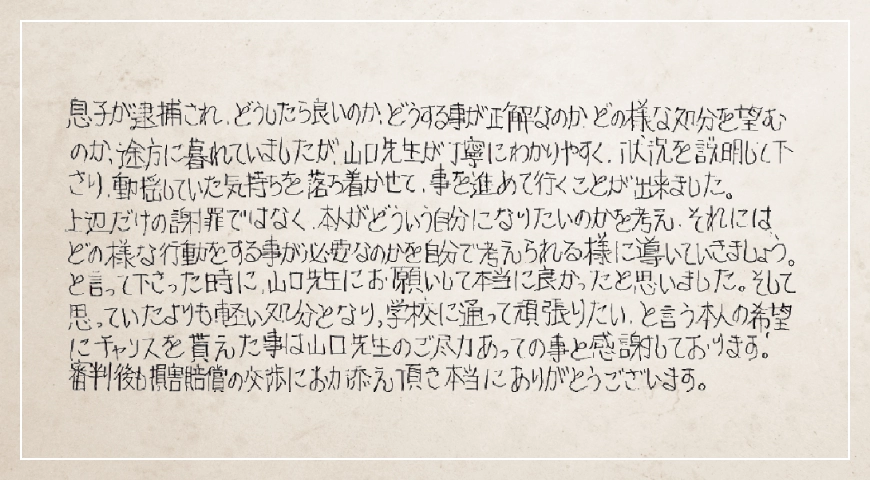 息子が逮捕され、どうしたら良いのか、どうする事が正解なのか、どの様な処分を望む
のか、途方に暮れていましたが、山口先生が丁寧にわかりやすく、状況を説明して下
さり、動揺していた気持ちを落ち着かせて、事を進めて行くことが出来ました。
上辺だけの謝罪ではなく、本人がどういう自分になりたいのかを考え、それには、
どの様な行動をする事が必要なのかを自分で考えられる様に導いていきましょう。
と言って下さった時に、山口先生にお願いして本当に良かったと思いました。そして
思っていたよりも軽い処分となり、学校に通って頑張りたい、と言う本人の希望
にチャンスを貰えた事は山口先生のご尽力あっての事と感謝しております。
審判後も損害賠償の交渉にお力添え頂き本当にありがとうございます。